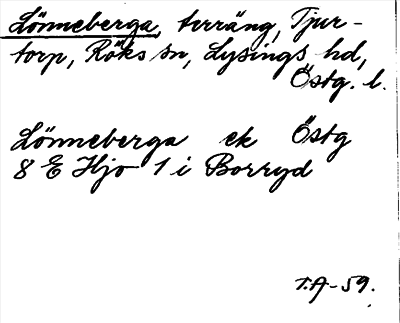 Lönneberga, terräng, Tjur-
torp, Röks sn, Lysings hd,
Östg. l.
Lönneberga ek Östg
8 E Hjo 1 i Borryd
T.A-59.